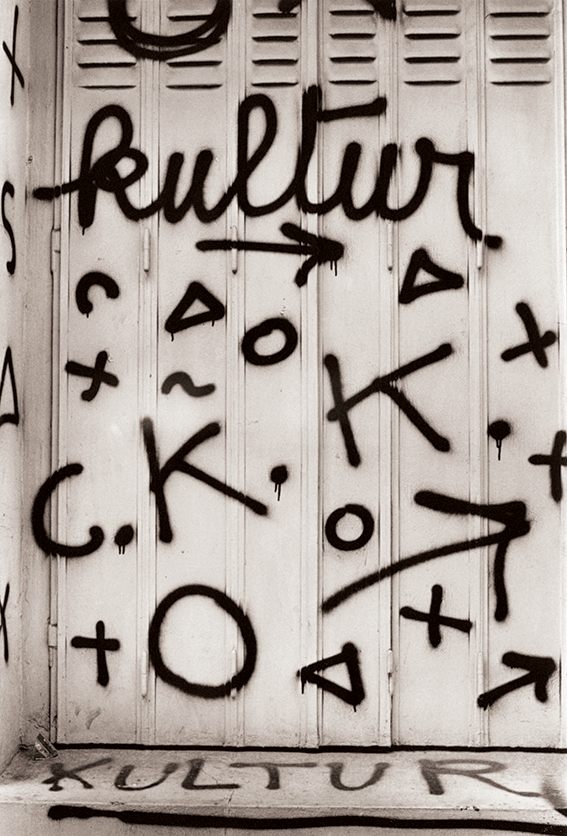 kultur
K.
C.K.
KULTUR